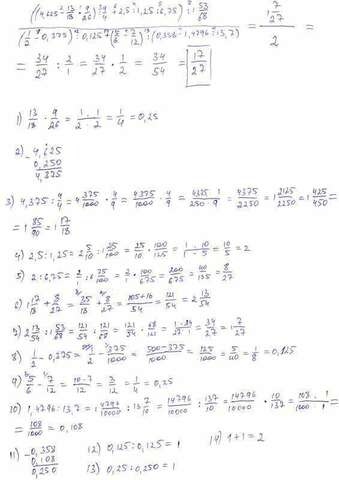 ((4,625 - 13/18 · 9/26) : 9/4 + 2,5 : 1,25 : 6,75) : 1 53/68
(1/2 - 0,375) : 0,125 + (5/6 - 7/12) : (0,358 - 1,4796 : 13,7) = 1 7/27 / 2 =
= 34/27 : 2/1 = 34/27 · 1/2 = 34/54 = 17/27
1) 13/18 · 9/26 = 1·1/2·2 = 1/4 = 0,25
2) - 4,625
0,250
4,375
3) 4,375 : 9/4 = 4 375/1000 · 4/9 = 4375/1000 · 4/9 = 4375·1/250·9 = 4375/2250 = 1 2125/2250 = 1 425/450 =
= 1 85/90 = 1 17/18
4) 2,5 : 1,25 = 2 5/10 : 1 25/100 = 25/10 · 100/125 = 1·10/1·5 = 10/5 = 2
5) 2 : 6,75 = 2/1 : 6 75/100 = 2/1 · 100/675 = 200/675 = 40/135 = 8/27
6) 1 17/18 + 8/27 = 35/18 + 8/27 = 105+16/54 = 121/54 = 2 13/54
7) 2 13/54 : 1 53/68 = 121/54 : 121/68 = 121/54 · 68/121 = 1·34/27 = 34/27 = 1 7/27
8) 1/2 - 0,375 = 1/2 - 375/1000 = 500-375/1000 = 125/1000 = 5/40 = 1/8 = 0,125
9) 5/6 - 7/12 = 10-7/12 = 3/12 = 1/4 = 0,25
10) 1,4796 : 13,7 = 1 4796/10000 : 13 7/10 = 14796/10000 : 137/10 = 14796/10000 · 10/137 = 108·1/1000·1 =
= 108/1000 = 0,108
11) - 0,358
0,108
0,250
12) 0,125 : 0,125 = 1
13) 0,25 : 0,250 = 1
14) 1+1 = 2